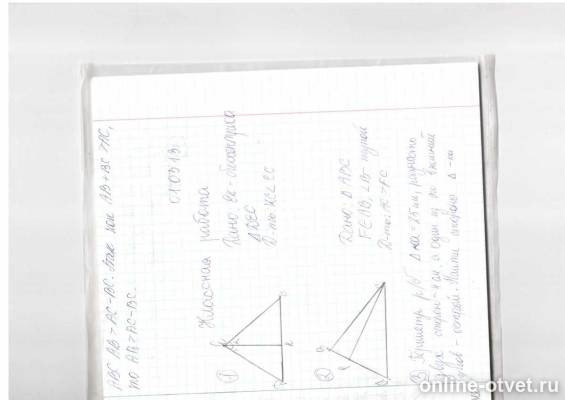 ABC AB > AC - BC. Так как AB + BC > AC,
то AB > AC - BC.
010313
Классная работа
① Дано: EK - биссектриса
Δ DEC
D-ть: KC < EC
E
D
K
C
② Дано: Δ ABC
F∈AB, ∠B - тупой
D-ть: AC > FC
B
F
A
C
③ Периметр р/б Δ-ка = 25 см, разность
двух сторон = 4 см, а один из его внешних
углов - острый. Найти стороны Δ-ка
online-otvet.ru